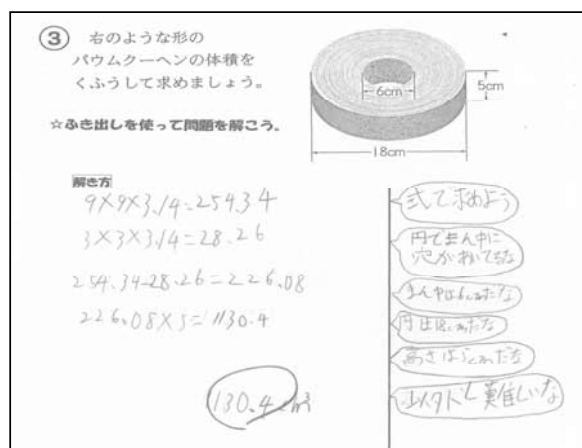 ③ 右のような形の
バウムクーヘンの体積を
くふうして求めましょう。
☆ふき出しを使って問題を解こう。
6cm
5cm
18cm
解き方
9×9×3.14=254.34
3×3×3.14=28.26
254.34-28.26=226.08
226.08×5=1130.4
1130.4cm³
式で求めよう
円でまん中に
穴があいてるな
まん中は6cmだな
円は18cmだな
高さは5cmだな
以外と難しいな